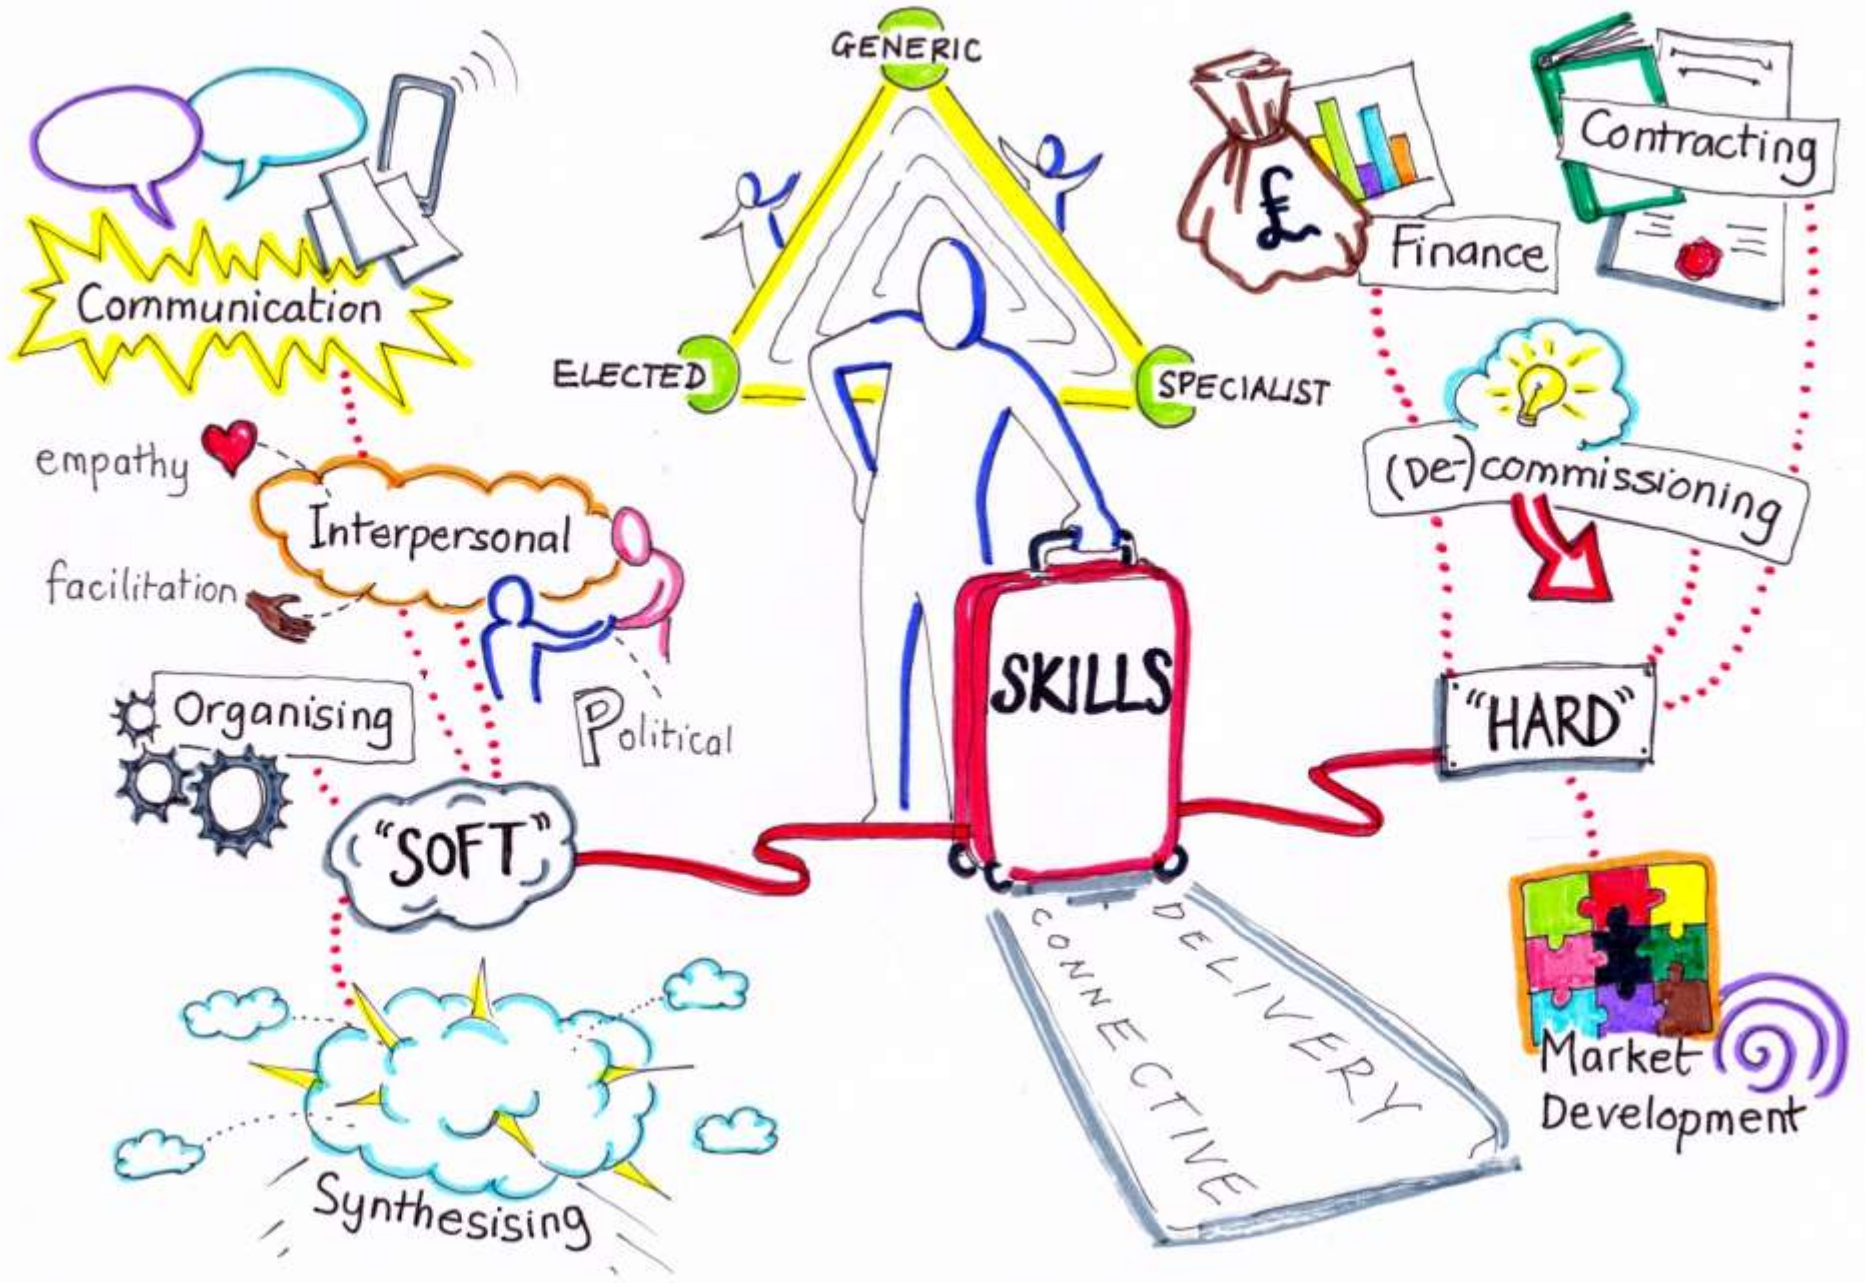 GENERIC
ELECTED
SPECIALIST
Communication
empathy
Interpersonal
facilitation
Organising
Political
"SOFT"
Synthesising
SKILLS
CONNECTIVE
DELIVERY
£
Finance
Contracting
(De-)commissioning
"HARD"
Market
Development